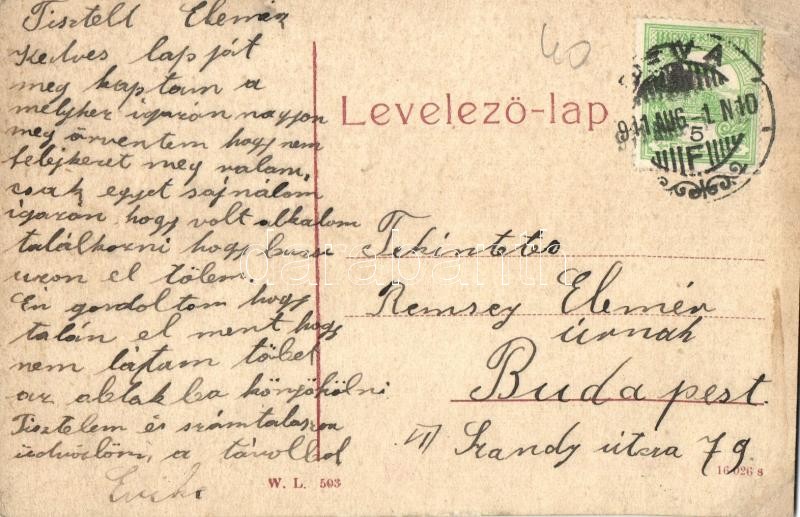 Tisztelt Elemér
Kedves lapját
meg kaptam a
melyher igazán nagyon
meg örventem hogy nem
felejkezet meg ralam,
csak egyet sajnálom
igazan hogy volt alkalom
találkozni hogy
el tölem.
En gondoltam hogy
talán el ment hogy
nem lájtam töbet
az ablakba könyökölni
Tisztelem és számtalaszor
üdvözlöm, a távolbol
40
Levelezö-lap
DÉVA
911 AUG -1 N10
5
F
darabanth
Tekintetes
Remsey Elemér
úrnak
Budapest
VII Szandy útsza 79.
W. L. 503
16 026 s